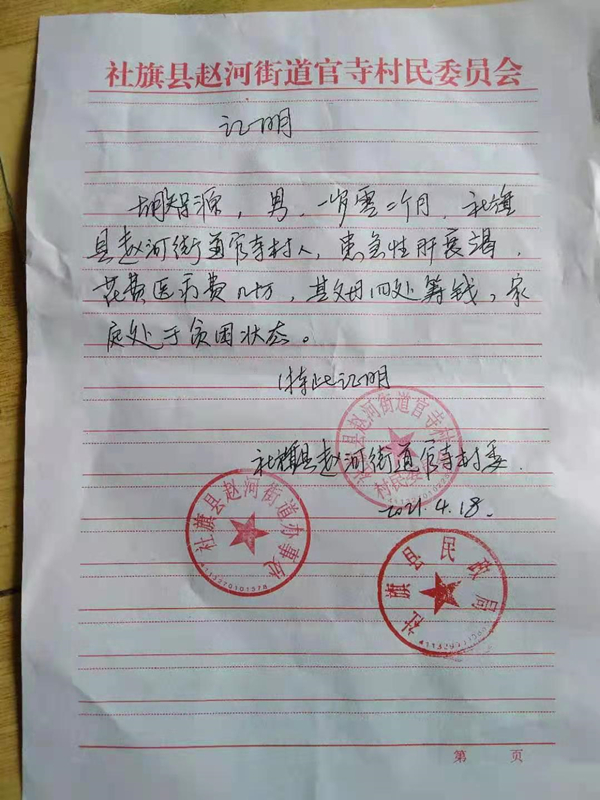 社旗县赵河街道官寺村民委员会
证明
胡智源，男，一岁零二个月，社旗
县赵河街道官寺村人，患急性肝衰竭，
花费医疗费几十万，其父母四处筹钱，家
庭处于贫困状态。
特此证明
社旗县赵河街道官寺村委.
2021.4.18.
社旗县赵河街道官寺村
村民委
社旗县赵河街道办事处
4113270101378
社旗县民政局
第 页